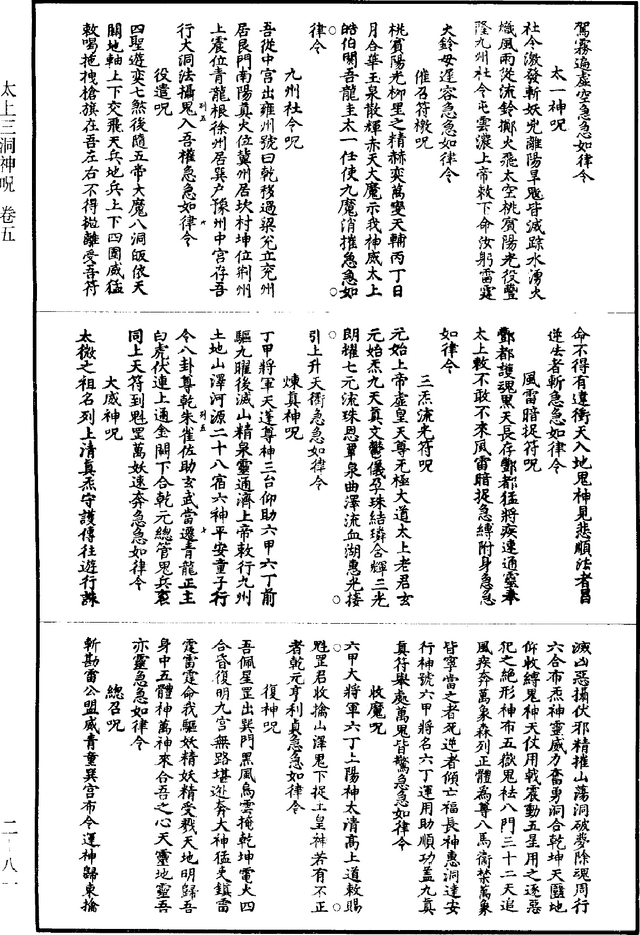 駕霧遍虛空急急如律令
太一神呪
社令激發斬妖兇離陽旱魃皆滅踪水湧火
熾風雨災流鈴擲火飛太空桃賓陽光役靈
隆九州社令屯雲濃上帝敕下命汝躬雷霆
火鈴毋遲容急急如律令
催召符檄呪
桃賓陽光柳里之精赫奕萬變天輔丙丁日
月合華玉泉散輝赤天大魔示我神威太上
皓伯闕吾龍圭太一任使九魔消摧急急如
律令
九州社令呪
吾從中宮出雍州號曰乾移過梁兊立兗州
居艮門南陽真火位冀州居坎村坤位荆州
上震位青龍根徐州居巽户豫州中宮存吾
行大洞法攝鬼入吾權急急如律令
役遣呪
四聖遊奕七煞後隨五帝大魔八洞皈依天
關地軸上下交飛天兵地兵上下四圍威猛
敕喝拖拽槍旗在吾左右不得抛離受吾符
命不得有違衝天入地鬼神見悲順法者昌
逆法者斬急急如律令
風雷暗捉符呪
酆都護魂黑天長存酆都猛將疾速通靈奉
太上敕不敢不來風雷暗捉急縛附身急急
如律令
三炁流光符呪
元始上帝虛皇天尊无極大道太上老君玄
元始炁九天真文鬱儀孕珠結璘合輝三光
朗耀七元流珠恩覃泉曲澤流血湖惠光接
引上升天衢急急如律令
煉真神呪
丁甲將軍天蓬尊神三台仰助六甲六丁前
驅九曜後滅山精泉靈通濟上帝敕行九州
土地山澤河源二十八宿六神平安童子行
令八卦尊乾朱雀佐助玄武當邊青龍正主
白虎伏連上通金闕下合乾元總管鬼兵衷
同上天符到魁罡萬妖速奔急急如律令
大威神呪
太微之祖名列上清真炁守護傳往遊行誅
滅凶惡攝伏邪精摧山蕩洞破夢除魂周行
六合布炁神靈威力奮勇洞合乾坤天醫地
仰收縛鬼神天仗用戟震動五星用之逐惡
犯之絶形神布五嶽鬼祛八門三十二天追
風疾奔萬象森列正體為尊八馬衙禁萬象
皆寧當之者死逆者傾亡福長神惠洞達安
行神號六甲將名六丁運用助順功蓋九真
真符舉處萬鬼皆驚急急如律令
收魔呪
六甲大將軍六丁上陽神太清高上道敕賜
魁罡君收擒山澤鬼下捉土皇神若有不正
者乾元亨利真急急如律令
復神呪
吾佩星罡出巽門黑風烏雲掩乾坤電火四
合昏復明九宮無路堪逃奔大神猛吏鎮雷
霆雷霆命我驅妖精妖精受戮天地明歸吾
身中五體神萬神來合吾之心天靈地靈吾
亦靈急急如律令
總召呪
斬勘雷公盟威青童巽宫布令運神歸東擒
太上三洞神呪　卷五
二－八一